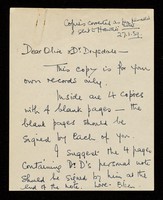 Copies corrected as
sent to
27.3.59.
Dear Olive & Dr. Drysdale -
This copy is for your
own records only.
Inside are 4 copies
with 4 blank pages - the
blank pages should be
signed by each of you.
I suggest the 4 pages
containing Dr D's personal note
should be signed by him at the
end of the note. Love.